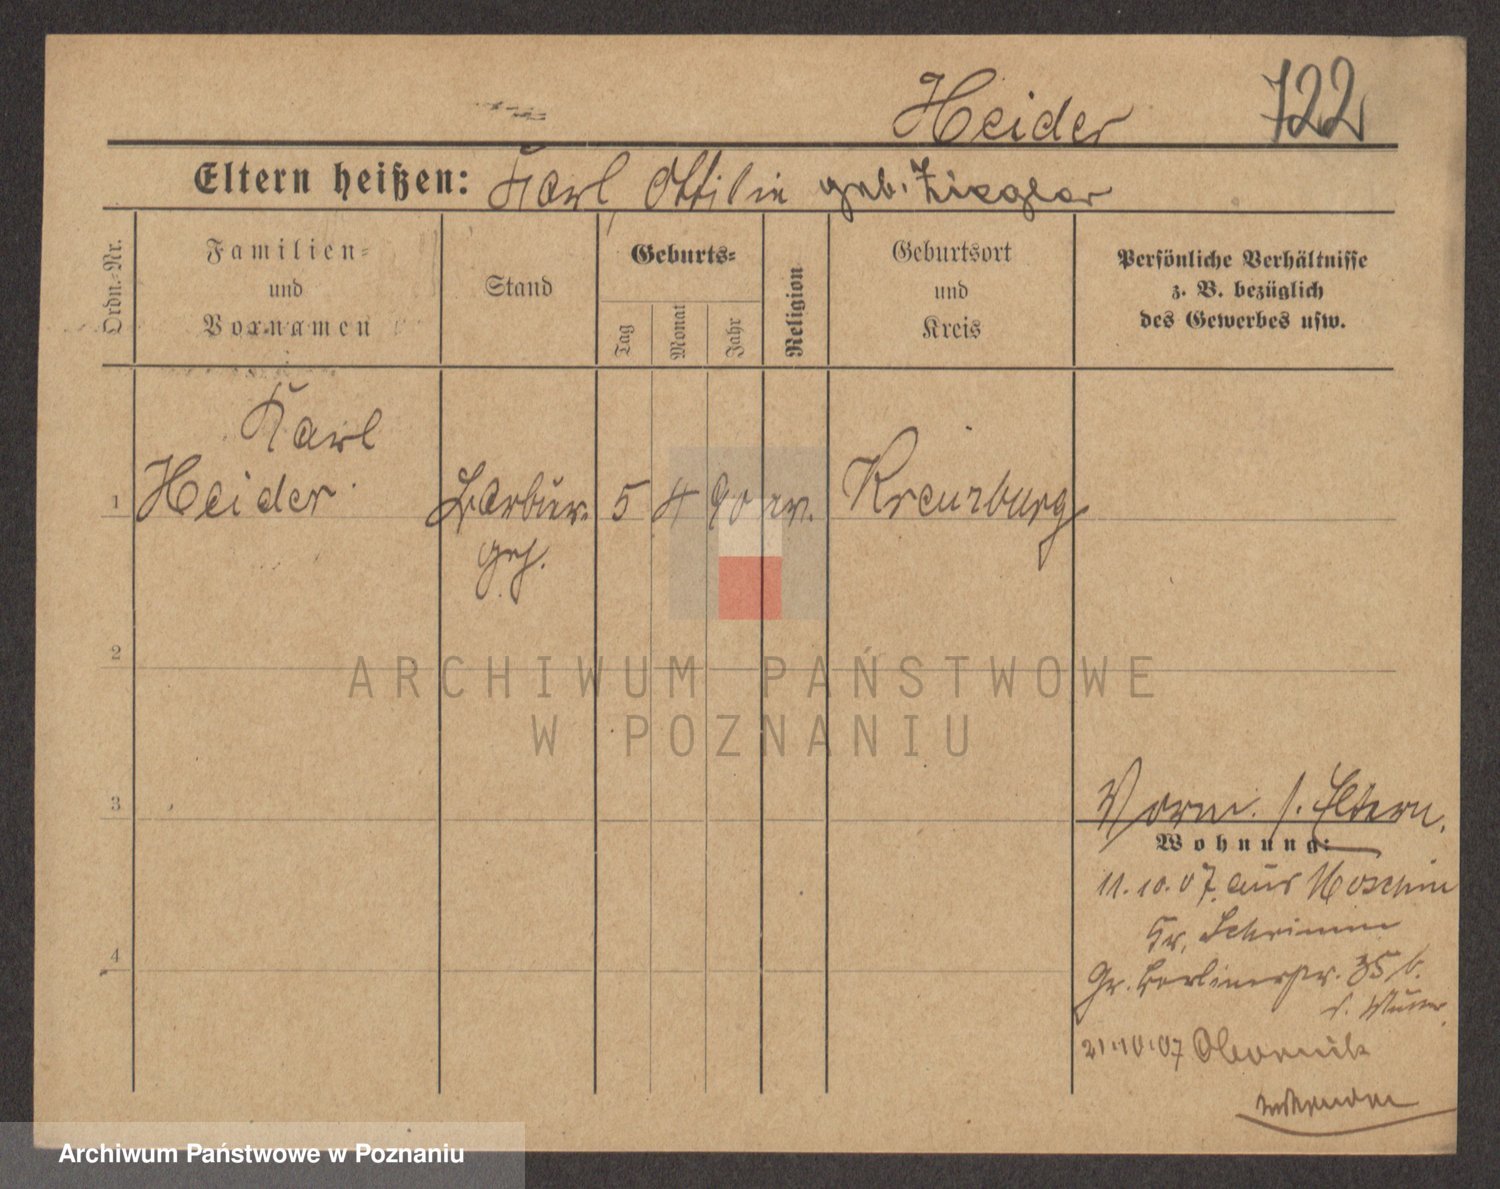 Heider 722
Eltern heißen: Karl Ottilie geb. Ziegler
Ordn.-Nr.
Familien-
und
Vornamen
Stand
Geburts-
Tag
Monat
Jahr
Religion
Geburtsort
und
Kreis
Persönliche Verhältnisse
z. B. bezüglich
des Gewerbes usw.
Karl
1 Heider Barbier 5 4 90 ev. Kreuzburg
geh.
2
ARCHIWUM PAŃSTWOWE
W POZNANIU
3
Vorm. s. Eltern.
Wohnung:
11.10.07. aus Moschin
Kr. Schrimm
Gr. Berlinerstr. 35 b.
21.10.07 Obornik
4
Archiwum Państwowe w Poznaniu